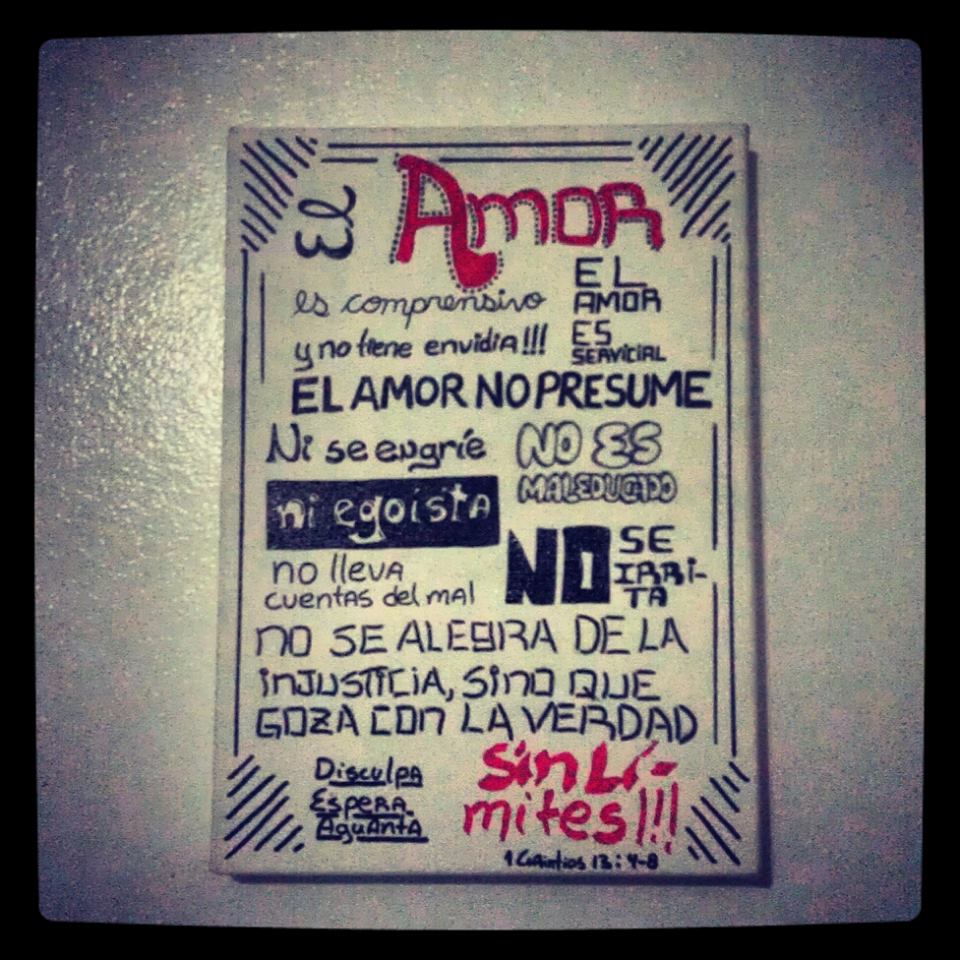 El Amor
es comprensivo
y no tiene envidia!!!
EL
AMOR
ES
SERVICIAL
EL AMOR NO PRESUME
Ni se engríe
NO ES
MALEDUCADO
ni egoista
NO SE
IRRI-
TA
no lleva
cuentas del mal
NO SE ALEGRA DE LA
iNJUSTiCiA, SiNO QUE
GOZA CON LA VERDAD
Disculpa
Espera
Aguanta
Sin Lí-
mites!!!
1 Corintios 13:4-8